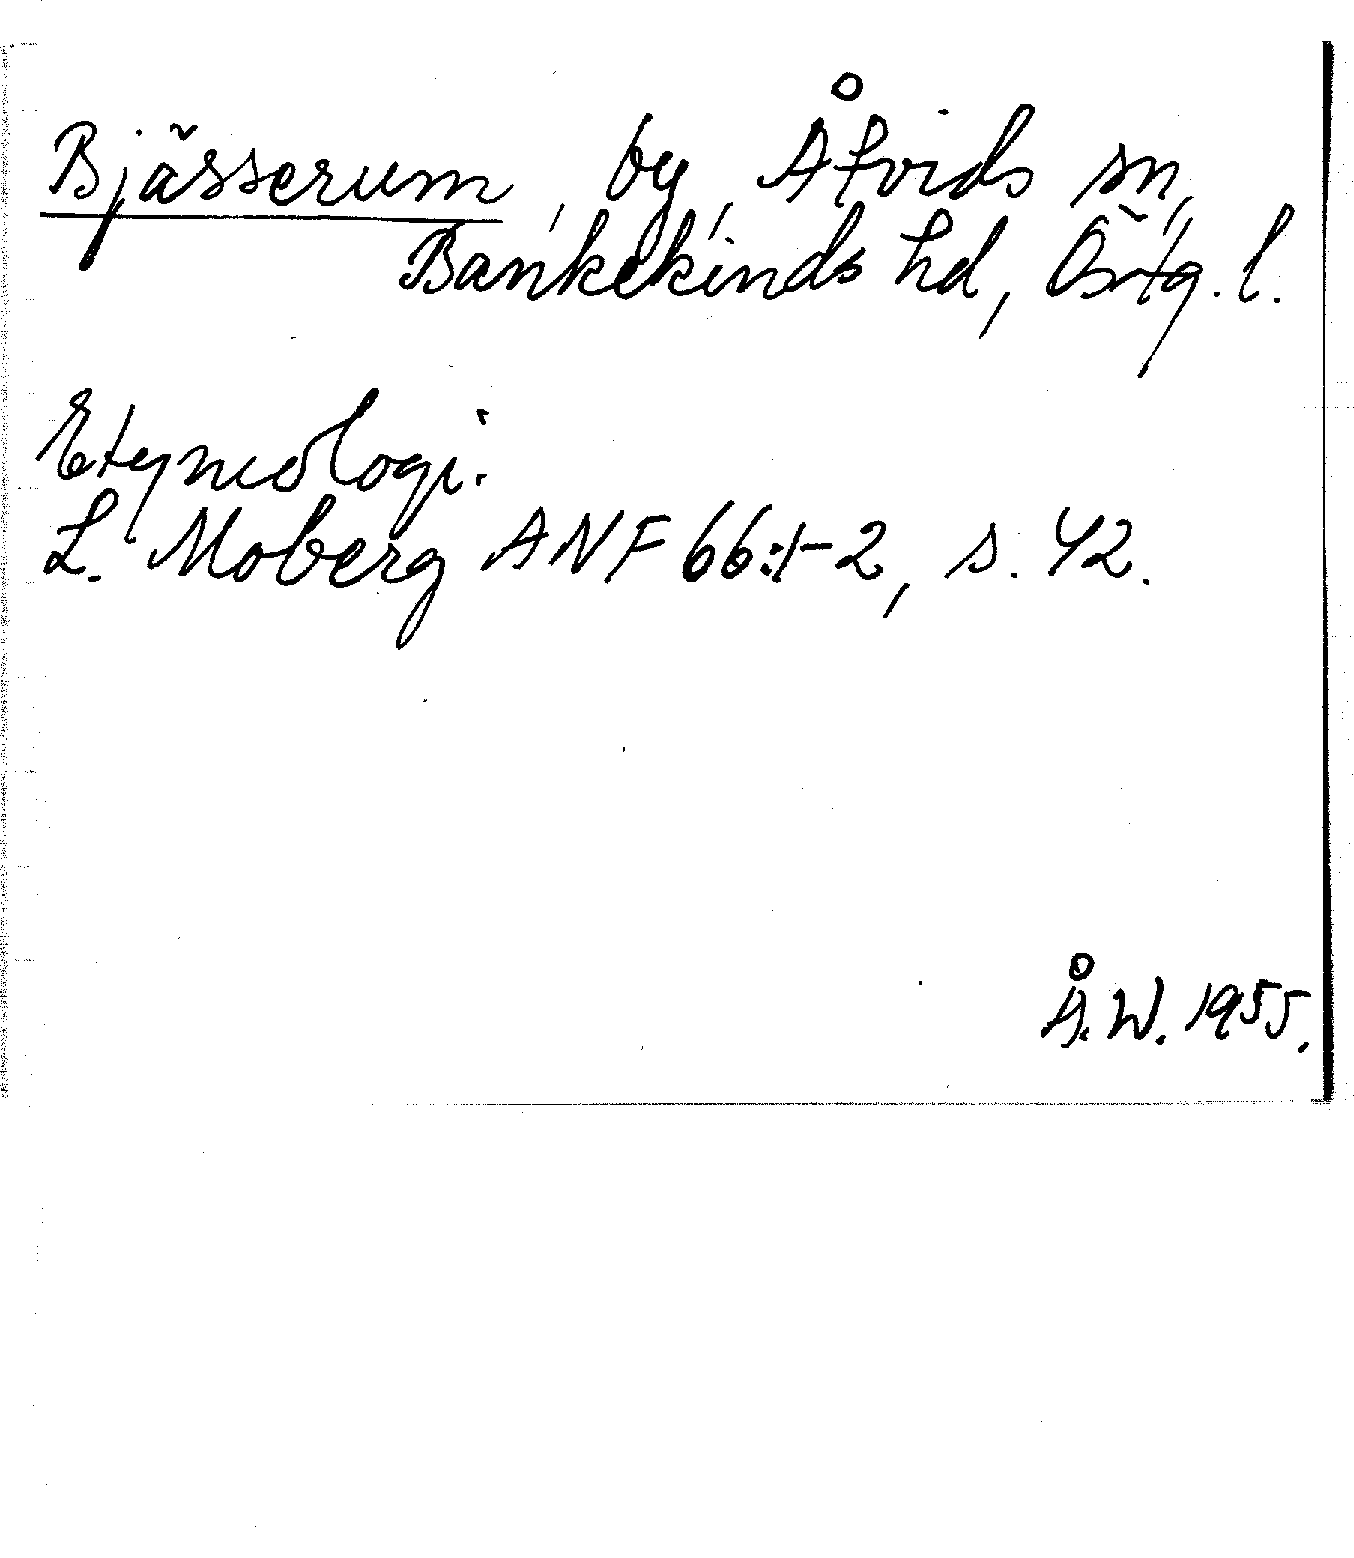 Bjässerum, by, Åtvids sn,
Bankekinds hd, Östg. l.
Etymologi:
L. Moberg ANF 66:1-2, s. 42.
Å.W. 1955.